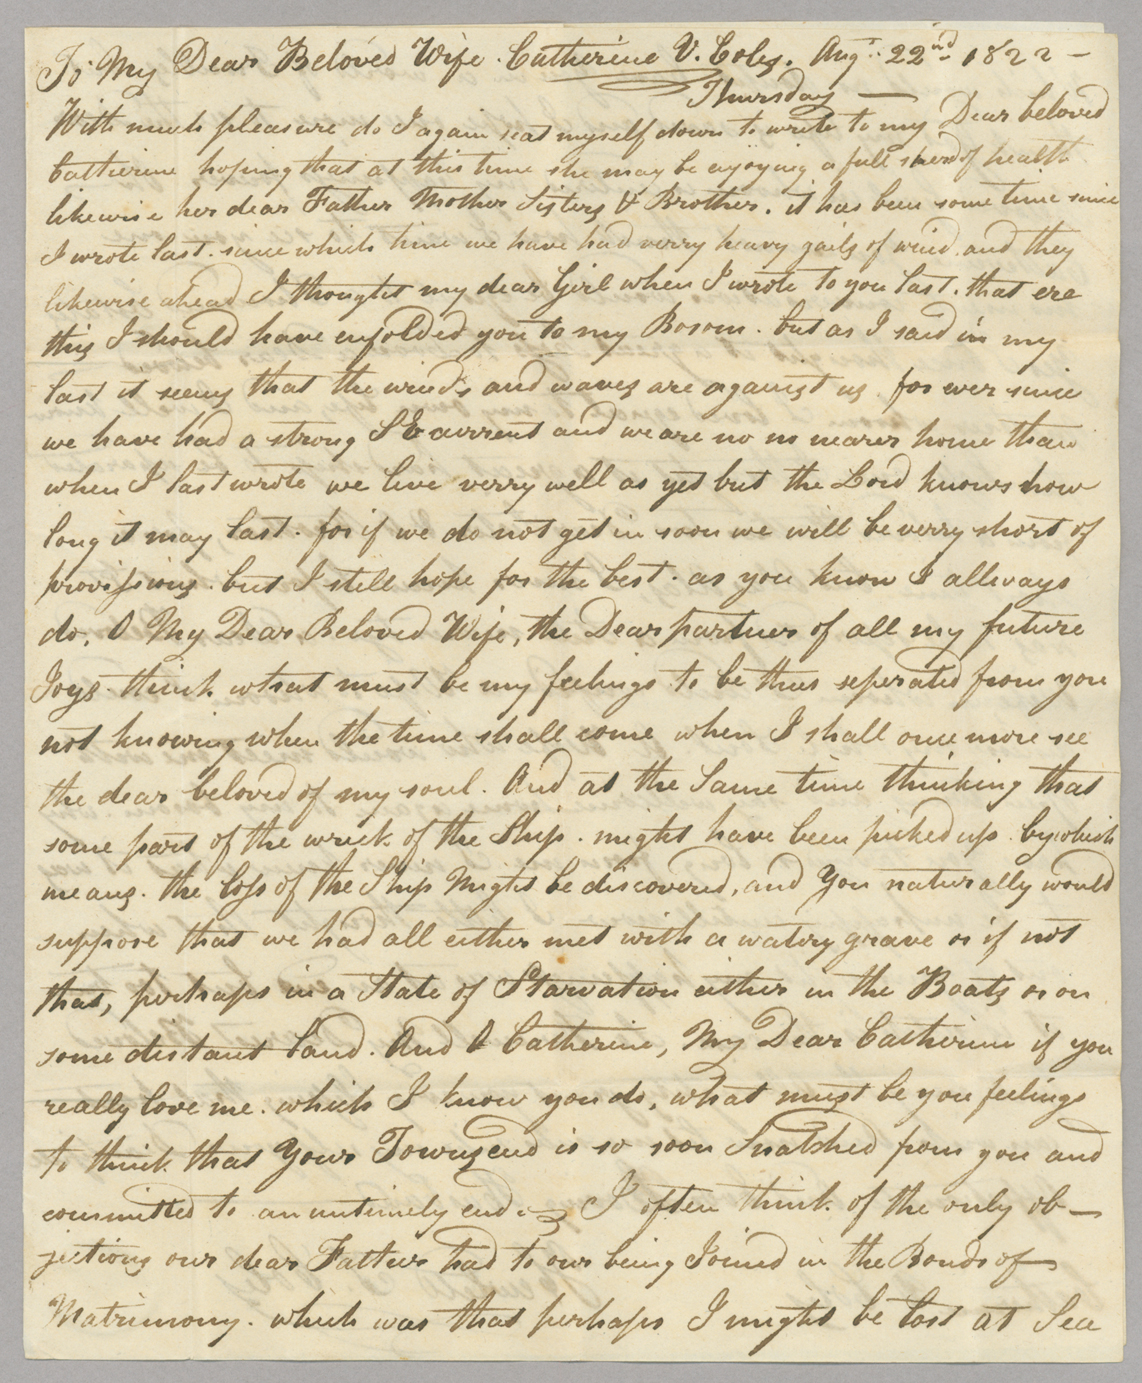 To My Dear Beloved Wife. Catherine V. Coles. Augt. 22nd 1822 -
Thursday —
With much pleasure do I again seat myself down to write to my Dear beloved
Catherine hoping that at this time she may be enjoying a full share of health
likewise her dear Father Mother Sisters & Brother. it has been some time since
I wrote last. since which time we have had verry heavy gails of wind. and they
likewise ahead I thought my dear Girl when I wrote to you last. that ere
this I should have enfolded you to my Bosom. but as I said in my
last it seems that the winds and waves are against us for ever since
we have had a strong S E current and we are no nearer home than
when I last wrote we live verry well as yet but the Lord knows how
long it may last. for if we do not get in soon we will be verry short of
provissions. but I still hope for the best. as you know I allways
do. O My Dear Beloved Wife, the Dear partner of all my future
Joys. think what must be my feelings to be thus seperated from you
not knowing when the time shall come when I shall once more see
the dear beloved of my soul. And at the Same time thinking that
some part of the wreck of the Ship. might have been picked up. by which
means. the loss of the Ship Might be discovered, and you naturally would
suppose that we had all either met with a watery grave or if not
that, perhaps in a State of Starvation either in the Boats or on
some distant Land. And O Catherine, My Dear Catherine if you
really love me. which I know you do, what must be you feelings
to think that Your Townsend is so soon Snatched from you and
committed to an untimely end. I often think of the only ob-
jections our dear Father had to our being Joined in the Bonds of
Matrimony. which was that perhaps I might be lost at Sea